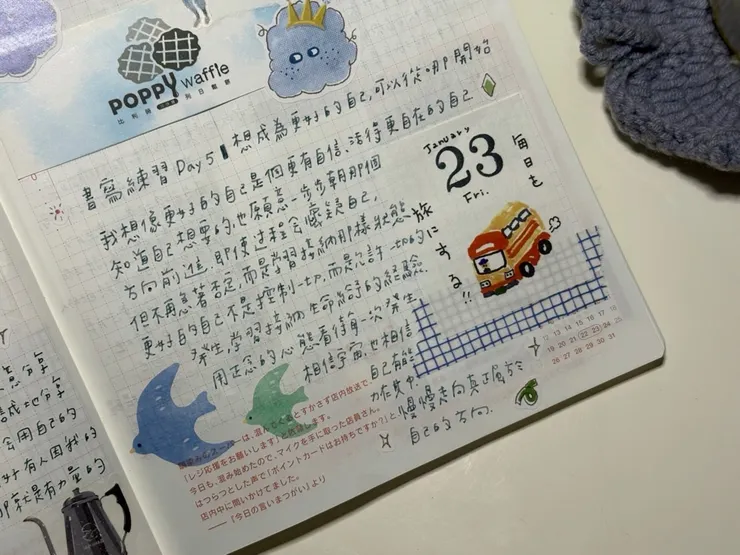 POPPY waffle
書寫練習 Day 5 | 想成為更好的自己,可以從哪開始
我想像更好的自己是個更有自信、活得更自在的自己
知道自己想要的,也願意一步步朝那個
方向前進,即使過程會懷疑自己,
但不再急著否定,而是學習接納那樣狀態
更好的自己不是控制一切,而是允許一切的
發生,學習接納生命給予的經驗
用正念的心態看待每一次發生
相信宇宙,也相信
自己有能
力在其中
慢慢走向真正屬於
自己的方向.
January
23
Fri.
毎日も
旅に
する!!
12 13 14 15 16 17 18
19 20 21 22 23 24 25
26 27 28 29 30 31
ーは、混んでくるとすかさず店内放送で、
「レジ応援をお願いします」と
今日も、混み始めたので、マイクを手に取った店員さん。
はつらつとした声で「ポイントカードはお持ちですか?」と、
店内中に問いかけてました。
——「今日の言いまつがい」より
分享
地分享
会用自己的
有人因我的
那就是有力量的